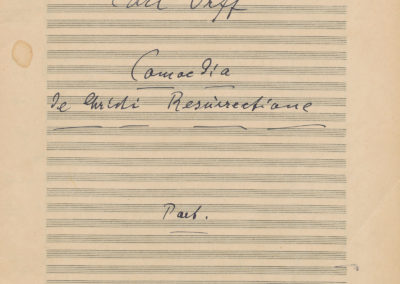 Carl Orff
Comoedia
de Christi Resurrectione
Part.